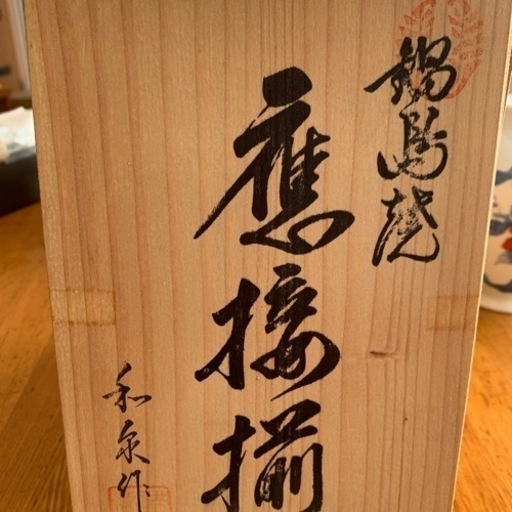 鍋島焼
應接揃
和泉作